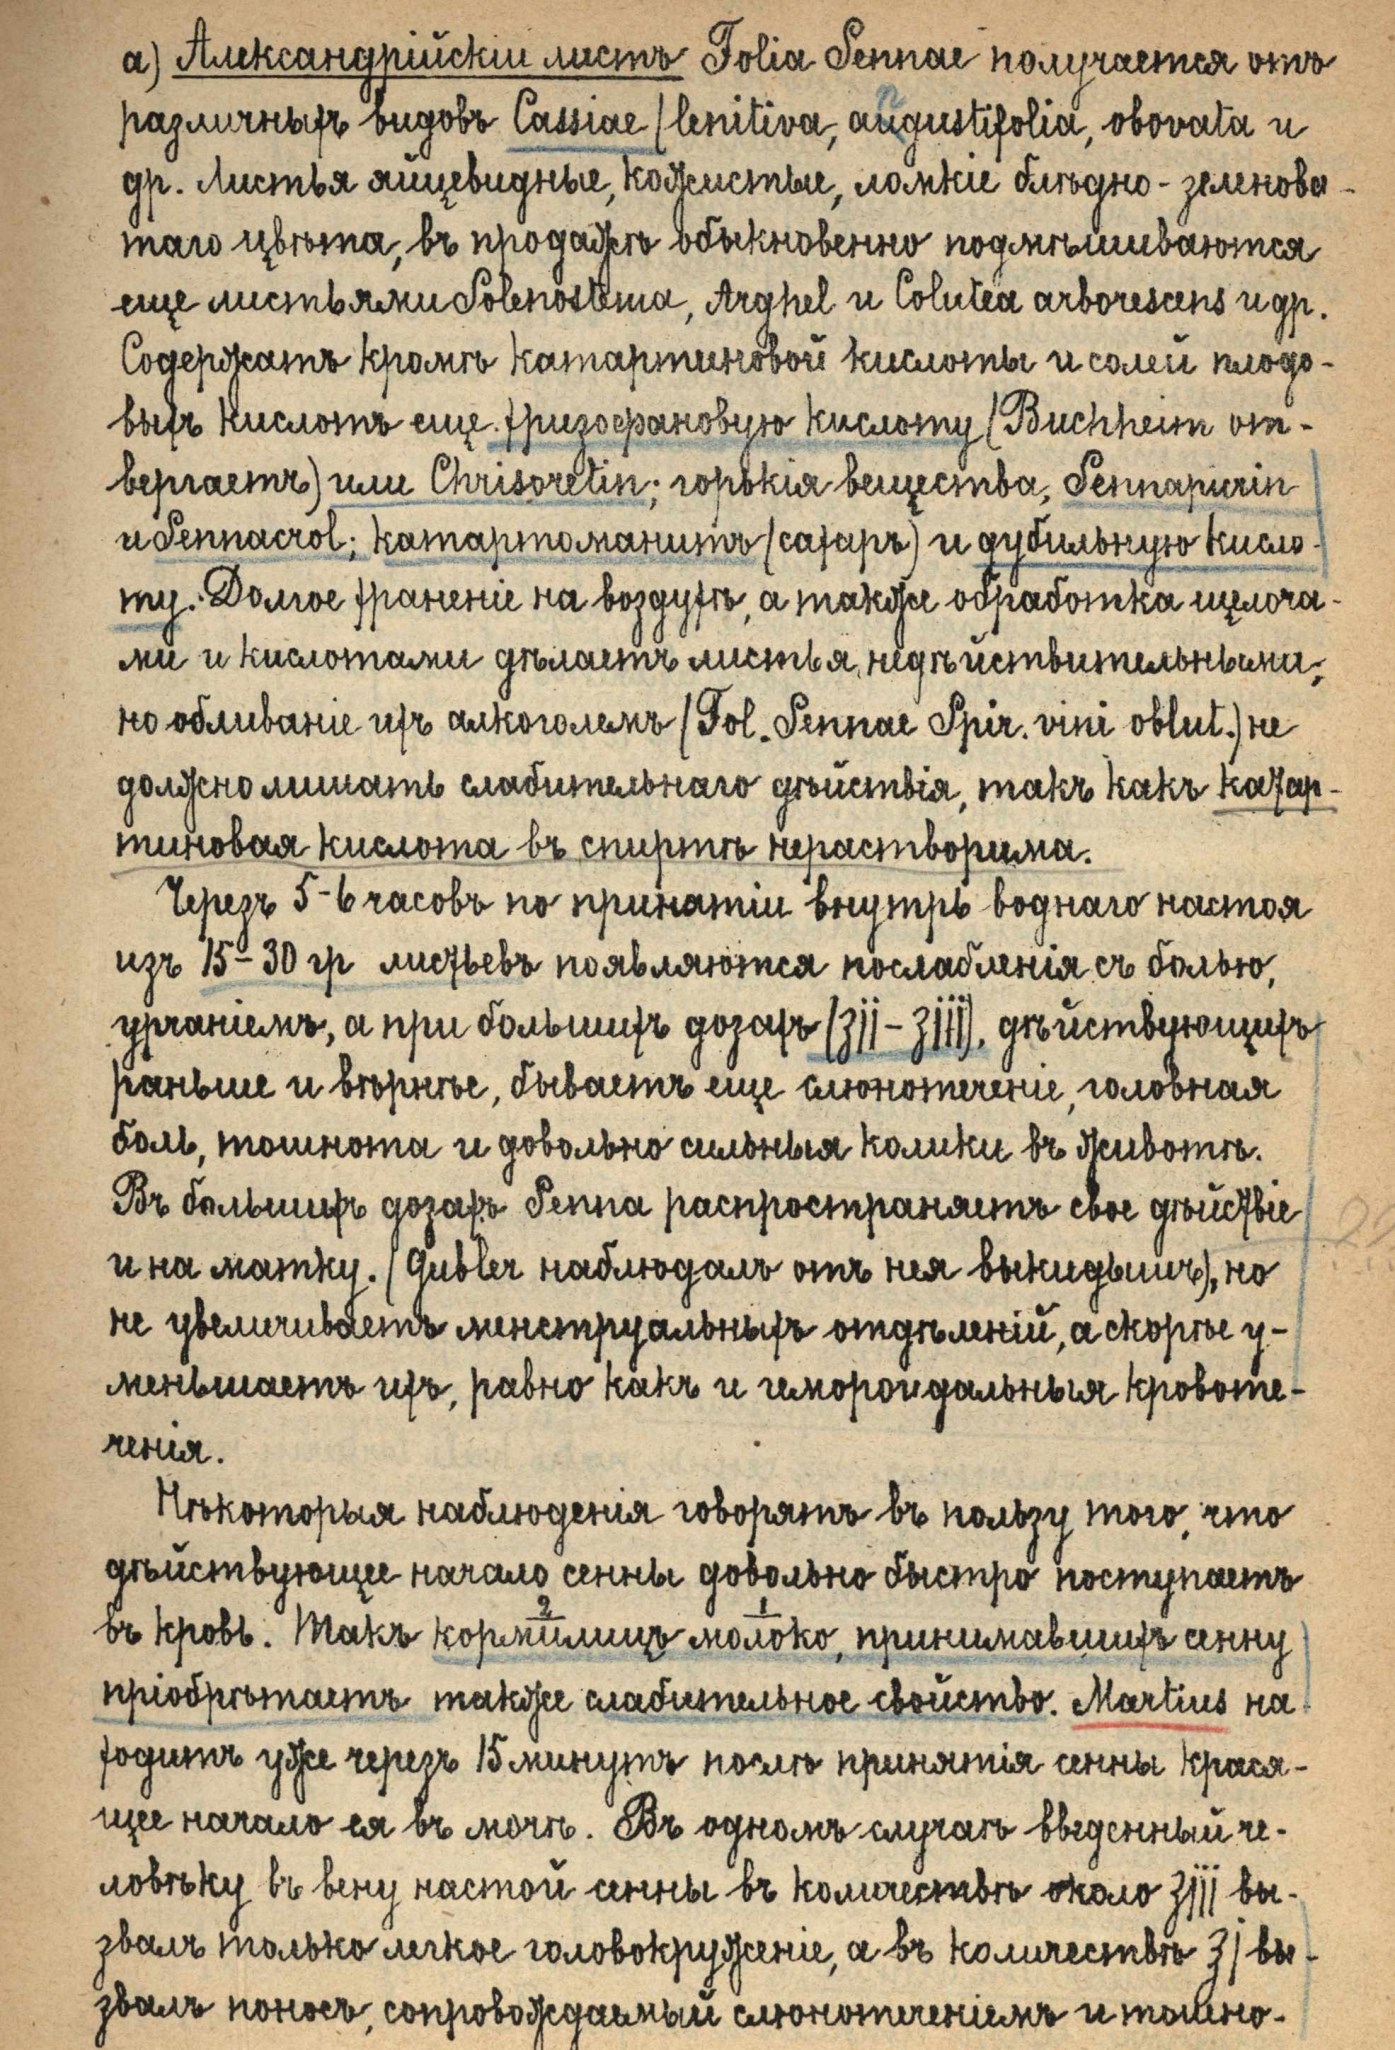 а) Александрійскіи листъ Folia Sennae получается отъ
различныхъ видовъ Cassiae (lenitiva, angustifolia, obovata и
др. Листья яйцевидные, кожистые, ломкіе блѣдно-зеленова-
таго цвѣта, въ продажѣ обыкновенно подмѣшиваются
еще листьями Solenostema, Arghel и Colutea arborescens и др.
Содержатъ кромѣ катартиновой кислоты и солей плодо-
выхъ кислотъ еще хризофановую кислоту (Buchheim от-
вергаетъ) или Chrisoretin; горькія вещества, Sennapicrin
и Sennacrol; катартоманитъ (сахаръ) и дубильную кисло-
ту. Долгое храненіе на воздухѣ, а также обработка щелоча-
ми и кислотами дѣлаетъ листья недѣйствительными;
но обливаніе ихъ алкоголемъ (Fol. Sennae Spir. vini oblut.) не
должно лишать слабительнаго дѣйствія, такъ какъ катар-
тиновая кислота въ спиртѣ нерастворима.
Черезъ 5-6 часовъ по принятіи внутрь воднаго настоя
изъ 15-30 гр листьевъ появляются послабленія съ болью,
урчаніемъ, а при большихъ дозахъ (ʒii-ʒiii), дѣйствующихъ
раньше и вѣрнѣе, бываетъ еще слюнотеченіе, головная
боль, тошнота и довольно сильныя колики въ животѣ.
Въ большихъ дозахъ Senna распространяетъ свое дѣйствіе
и на матку. (Gubler наблюдалъ отъ нея выкидышъ), но
не увеличиваетъ менструальныхъ отдѣленій, а скорѣе у-
меньшаетъ ихъ, равно какъ и гемороидальныя кровоте-
ченія.
Нѣкоторыя наблюденія говорятъ въ пользу того, что
дѣйствующее начало сенны довольно быстро поступаетъ
въ кровь. Такъ кормилицъ молоко, принимавшихъ сенну
пріобрѣтаетъ также слабительное свойство. Martius на
ходитъ уже черезъ 15 минутъ послѣ принятія сенны крася-
щее начало ея въ мочѣ. Въ одномъ случаѣ введенный че-
ловѣку въ вену настой сенны въ количествѣ около ʒiii вы-
звалъ только легкое головокруженіе, а въ количествѣ ʒj вы-
звалъ поносъ, сопровождаемый слюнотеченіемъ и тошно-